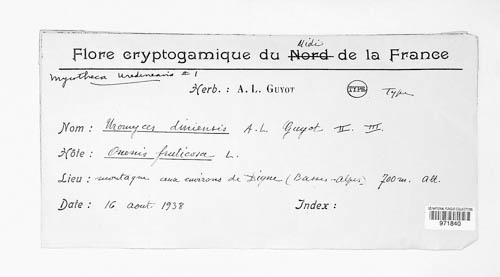 Midi
Flore cryptogamique du Nord de la France
Mycotheca Uredinearis #1
Herb. : A. L. GUYOT
TYPE
Type
Nom : Uromyces diniensis A. L. Guyot II. III.
Hôte : Ononis fruticosa L.
Lieu : montagne aux environs de Digne (Basses-Alpes) 700 m. alt.
Date : 16 aout 1938
Index :
US NATIONAL FUNGUS COLLECTIONS
971840